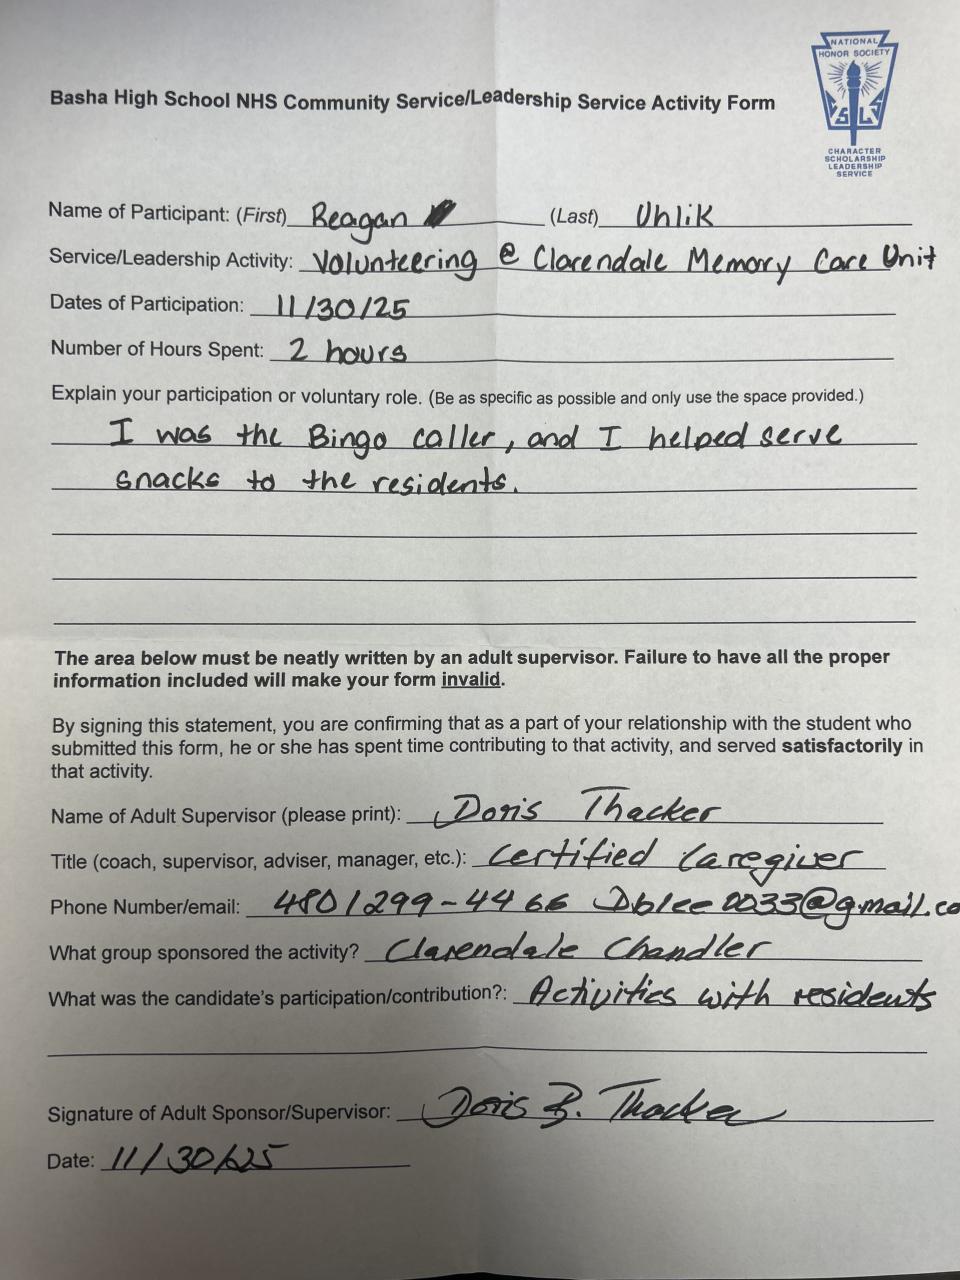 NATIONAL
HONOR SOCIETY
C S L S
CHARACTER
SCHOLARSHIP
LEADERSHIP
SERVICE
Basha High School NHS Community Service/Leadership Service Activity Form
Name of Participant: (First) Reagan (Last) Uhlik
Service/Leadership Activity: Volunteering @ Clarendale Memory Care Unit
Dates of Participation: 11/30/25
Number of Hours Spent: 2 hours
Explain your participation or voluntary role. (Be as specific as possible and only use the space provided.)
I was the Bingo caller, and I helped serve
snacks to the residents.
The area below must be neatly written by an adult supervisor. Failure to have all the proper
information included will make your form invalid.
By signing this statement, you are confirming that as a part of your relationship with the student who
submitted this form, he or she has spent time contributing to that activity, and served satisfactorily in
that activity.
Name of Adult Supervisor (please print): Doris Thacker
Title (coach, supervisor, adviser, manager, etc.): Certified Caregiver
Phone Number/email: 480/299-4466 Dblee0033@gmail.co
What group sponsored the activity? Clarendale Chandler
What was the candidate's participation/contribution?: Activities with residents
Signature of Adult Sponsor/Supervisor: Doris B. Thacker
Date: 11/30/25